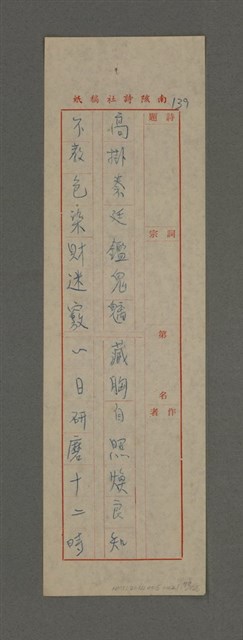 南陔詩社稿紙
139
詩題
詞宗
第 名
作者
高掛秦廷鑑鬼魑藏胸自照煥良知
不教色染財迷竅一日研磨十二時